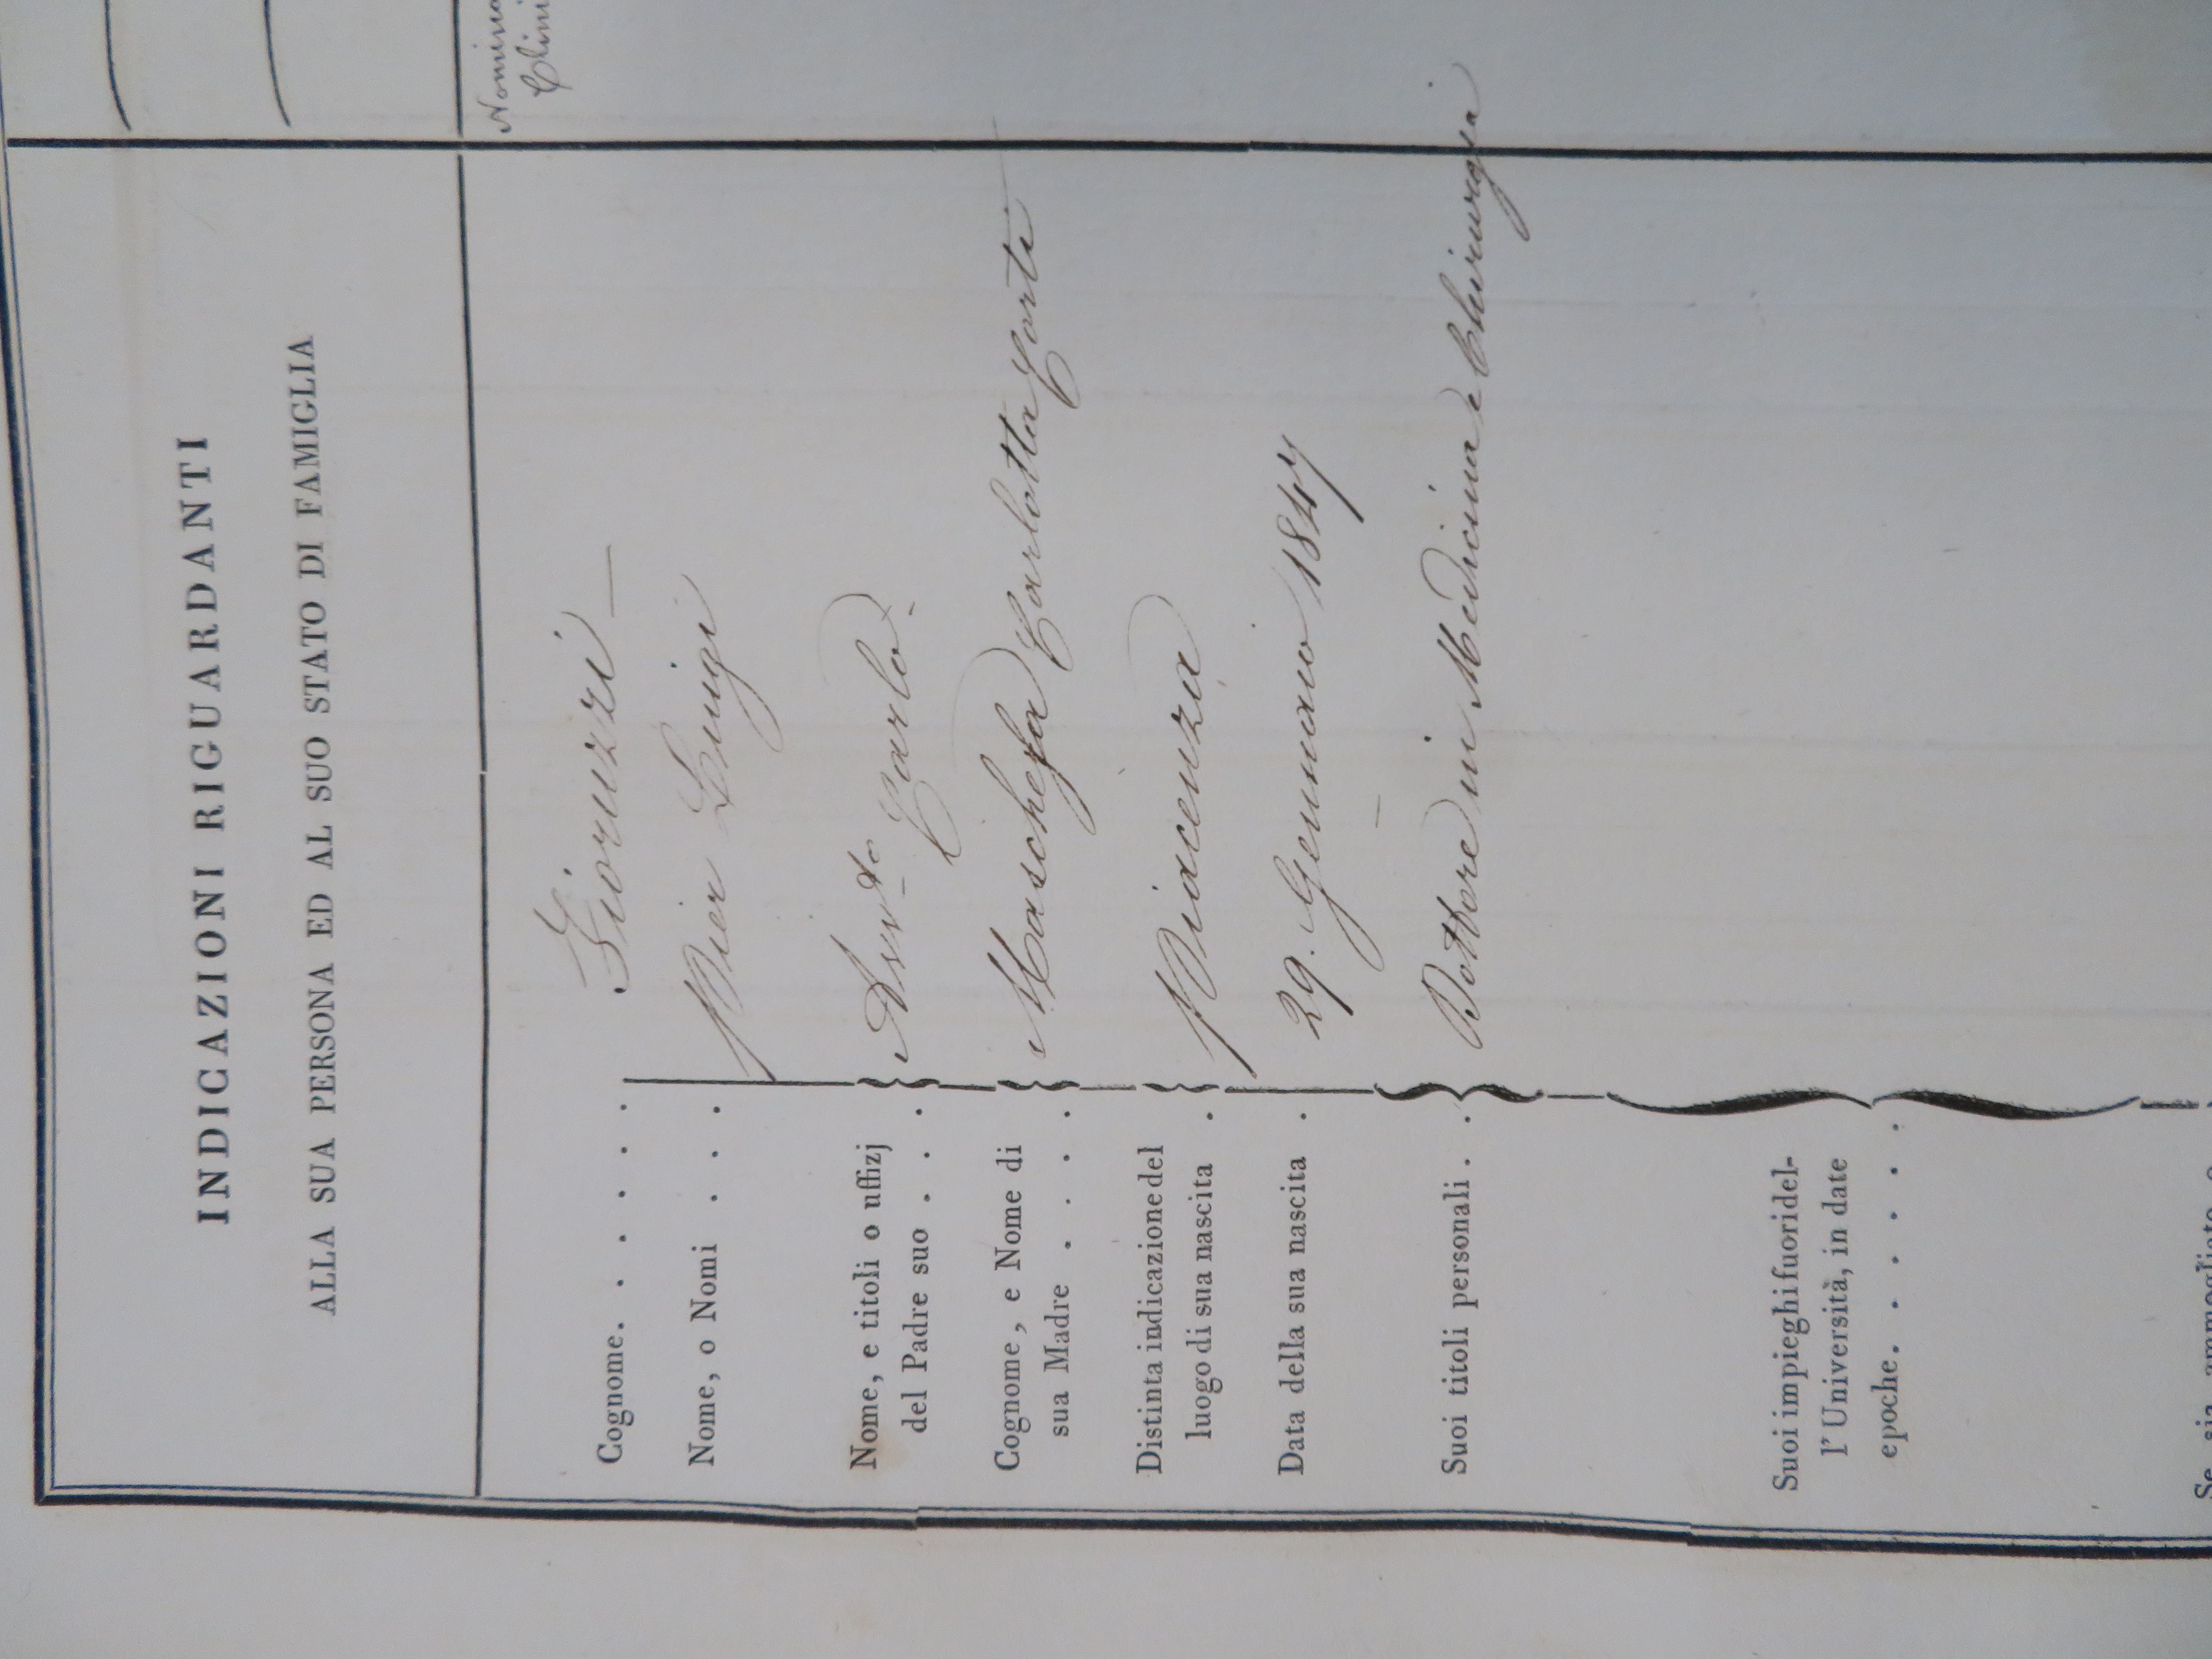 INDICAZIONI RIGUARDANTI
ALLA SUA PERSONA ED AL SUO STATO DI FAMIGLIA
Cognome. . . . . . Fioruzzi
Nome, o Nomi . . . . Pier Luigi
Nome, e titoli o uffizj
del Padre suo . . . Avv.to Carlo
Cognome, e Nome di
sua Madre . . . . Carlotta Corti
Distinta indicazione del
luogo di sua nascita . Piacenza
Data della sua nascita . 29. Gennaio 1847
Suoi titoli personali . . Dottore in Medicina e Chirurgia
Suoi impieghi fuori del-
l'Università, in date
epoche. . . . . . .
Se sia ammogliato o